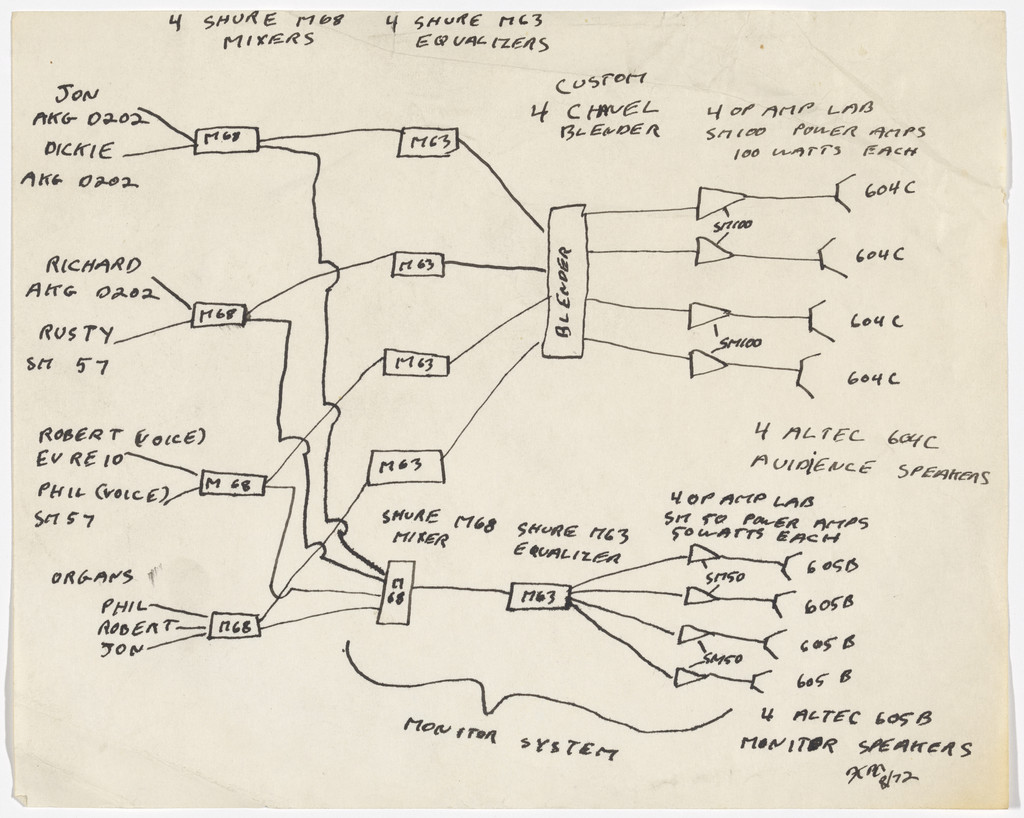 4 SHURE M68
MIXERS
4 SHURE M63
EQUALIZERS
CUSTOM
4 CHAVEL
BLENDER
4 OP AMP LAB
SM100 POWER AMPS
100 WATTS EACH
JON
AKG D202
DICKIE
AKG D202
M68
M63
RICHARD
AKG D202
RUSTY
SM 57
M68
M63
ROBERT (VOICE)
EV RE10
PHIL (VOICE)
SM57
M 68
M63
ORGANS
PHIL
ROBERT
JON
M68
M63
BLENDER
SM100
SM100
604C
604C
604C
604C
4 ALTEC 604C
AUIDIENCE SPEAKERS
SHURE M68
MIXER
M
68
SHURE M63
EQUALIZER
M63
4 OP AMP LAB
SM 50 POWER AMPS
50 WATTS EACH
SM50
SM50
605B
605B
605 B
605 B
MONITOR SYSTEM
4 ALTEC 605B
MONITOR SPEAKERS
8/72